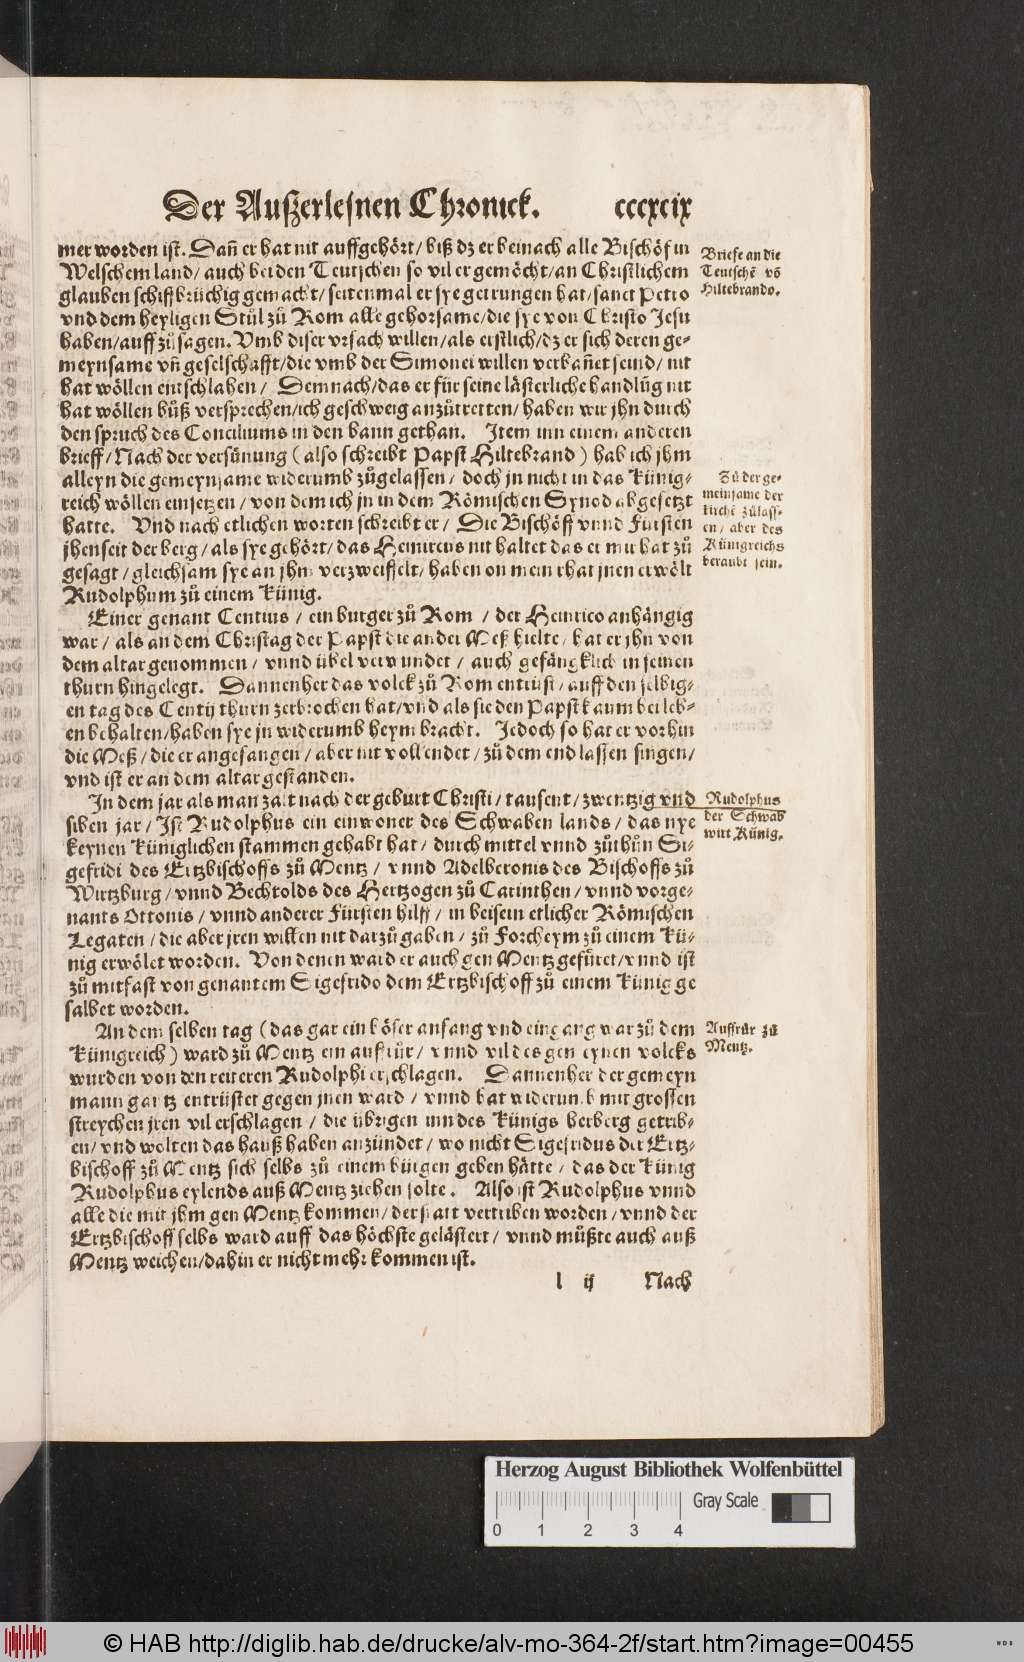 Der Außerlesnen Chronick. cccxcix
mer worden ist. Dañ er hat nit auffgehört/ biß dz er beinach alle Bischöf in
Welschem land/ auch bei den Teutschen so vil er gemöcht/ an Christlichem
glauben schiffbrüchig gemacht/ seitenmal er sye getrungen hat/ sanct Petro
vnd dem heyligen Stůl zů Rom alle gehorsame/ die sye von Christo Jesu
haben/ auff zů sagen. Vmb diser vrsach willen/ als erstlich/ dz er sich deren ge-
meynsame vñ geselschafft/ die vmb der Simonei willen verbañet seind/ nit
hat wöllen entschlahen/ Demnach/ das er für seine lästerliche handlũg nit
hat wöllen bůß versprechen/ ich geschweig anzůtretten/ haben wir jhn durch
den spruch des Conciliums in den bann gethan. Item inn einem anderen
brieff/ Nach der versünung (also schreibt Papst Hiltebrand) hab ich jhm
alleyn die gemeynsame widerumb zůgelassen/ doch jn nicht in das Künig-
reich wöllen einsetzen/ von dem ich jn in dem Römischen Synod abgesetzt
hatte. Vnd nach etlichen worten schreibt er/ Die Bischöff vnnd Fürsten
jhenseit der berg/ als sye gehört/ das Heinricus nit haltet das er mir hat zů
gesagt/ gleichsam sye an jhm verzweiffelt/ haben on mein rhat jnen erwölt
Rudolphum zů einem Künig.
Einer genant Centius/ ein burger zů Rom/ der Heinrico anhängig
war/ als an dem Christag der Papst die ander Meß hielte/ hat er jhn von
dem altar genommen/ vnnd übel verwundet/ auch gefängklich in seinen
thurn hingelegt. Dannenher das volck zů Rom entrüst/ auff den selbig-
en tag des Centij thurn zerbrochen hat/ vnd als sie den Papst kaum bei leb-
en behalten/ haben sye jn widerumb heym bracht. Jedoch so hat er vorhin
die Meß/ die er angefangen/ aber nit vollendet/ zů dem end lassen singen/
vnd ist er an dem altar gestanden.
In dem jar als man zalt nach der geburt Christi/ tausent/ zwentzig vnd
siben jar/ Ist Rudolphus ein einwoner des Schwaben lands/ das nye
keynen Küniglichen stammen gehabt hat/ durch mittel vnnd zůthůn Si-
gefridi des Ertzbischoffs zů Mentz/ vnnd Adelberonis des Bischoffs zů
Wirtzburg/ vnnd Bechtolds des Hertzogen zů Carinthen/ vnnd vorge-
nants Ottonis/ vnnd anderer Fürsten hilff/ in beisein etlicher Römischen
Legaten/ die aber jren willen nit darzů gaben/ zů Forcheym zů einem Kü-
nig erwölet worden. Von denen ward er auch gen Mentz gefůret/ vnnd ist
zů mitfast von genantem Sigefrido dem Ertzbischoff zů einem Künig ge
salbet worden.
An dem selben tag (das gar ein böser anfang vnd eingang war zů dem
Künigreich) ward zů Mentz ein auffrůr/ vnnd vil des gemeynen volcks
wurden von den reiteren Rudolphi erschlagen. Dannenher der gemeyn
mann gantz entrüstet gegen jnen ward/ vnnd hat widerumb mit grossen
streychen jren vil erschlagen/ die übrigen inn des Künigs herberg getrib-
en/ vnd wolten das hauß haben anzündet/ wo nicht Sigefridus der Ertz-
bischoff zů Mentz sich selbs zů einem bürgen geben hätte/ das der Künig
Rudolphus eylends auß Mentz ziehen solte. Also ist Rudolphus vnnd
alle die mit jhm gen Mentz kommen/ der statt vertriben worden/ vnnd der
Ertzbischoff selbs ward auff das höchste gelästert/ vnnd můßte auch auß
Mentz weichen/ dahin er nicht mehr kommen ist.
l ij Nach
Briefe an die
Teutschẽ võ
Hiltebrando.
Zů der ge-
meinsame der
kirchẽ zůlass-
en/ aber des
Künigreichs
beraubt sein.
Rudolphus
der Schwab
wirt Künig.
Auffrůr zů
Mentz.
Herzog August Bibliothek Wolfenbüttel
Gray Scale
0 1 2 3 4
© HAB http://diglib.hab.de/drucke/alv-mo-364-2f/start.htm?image=00455